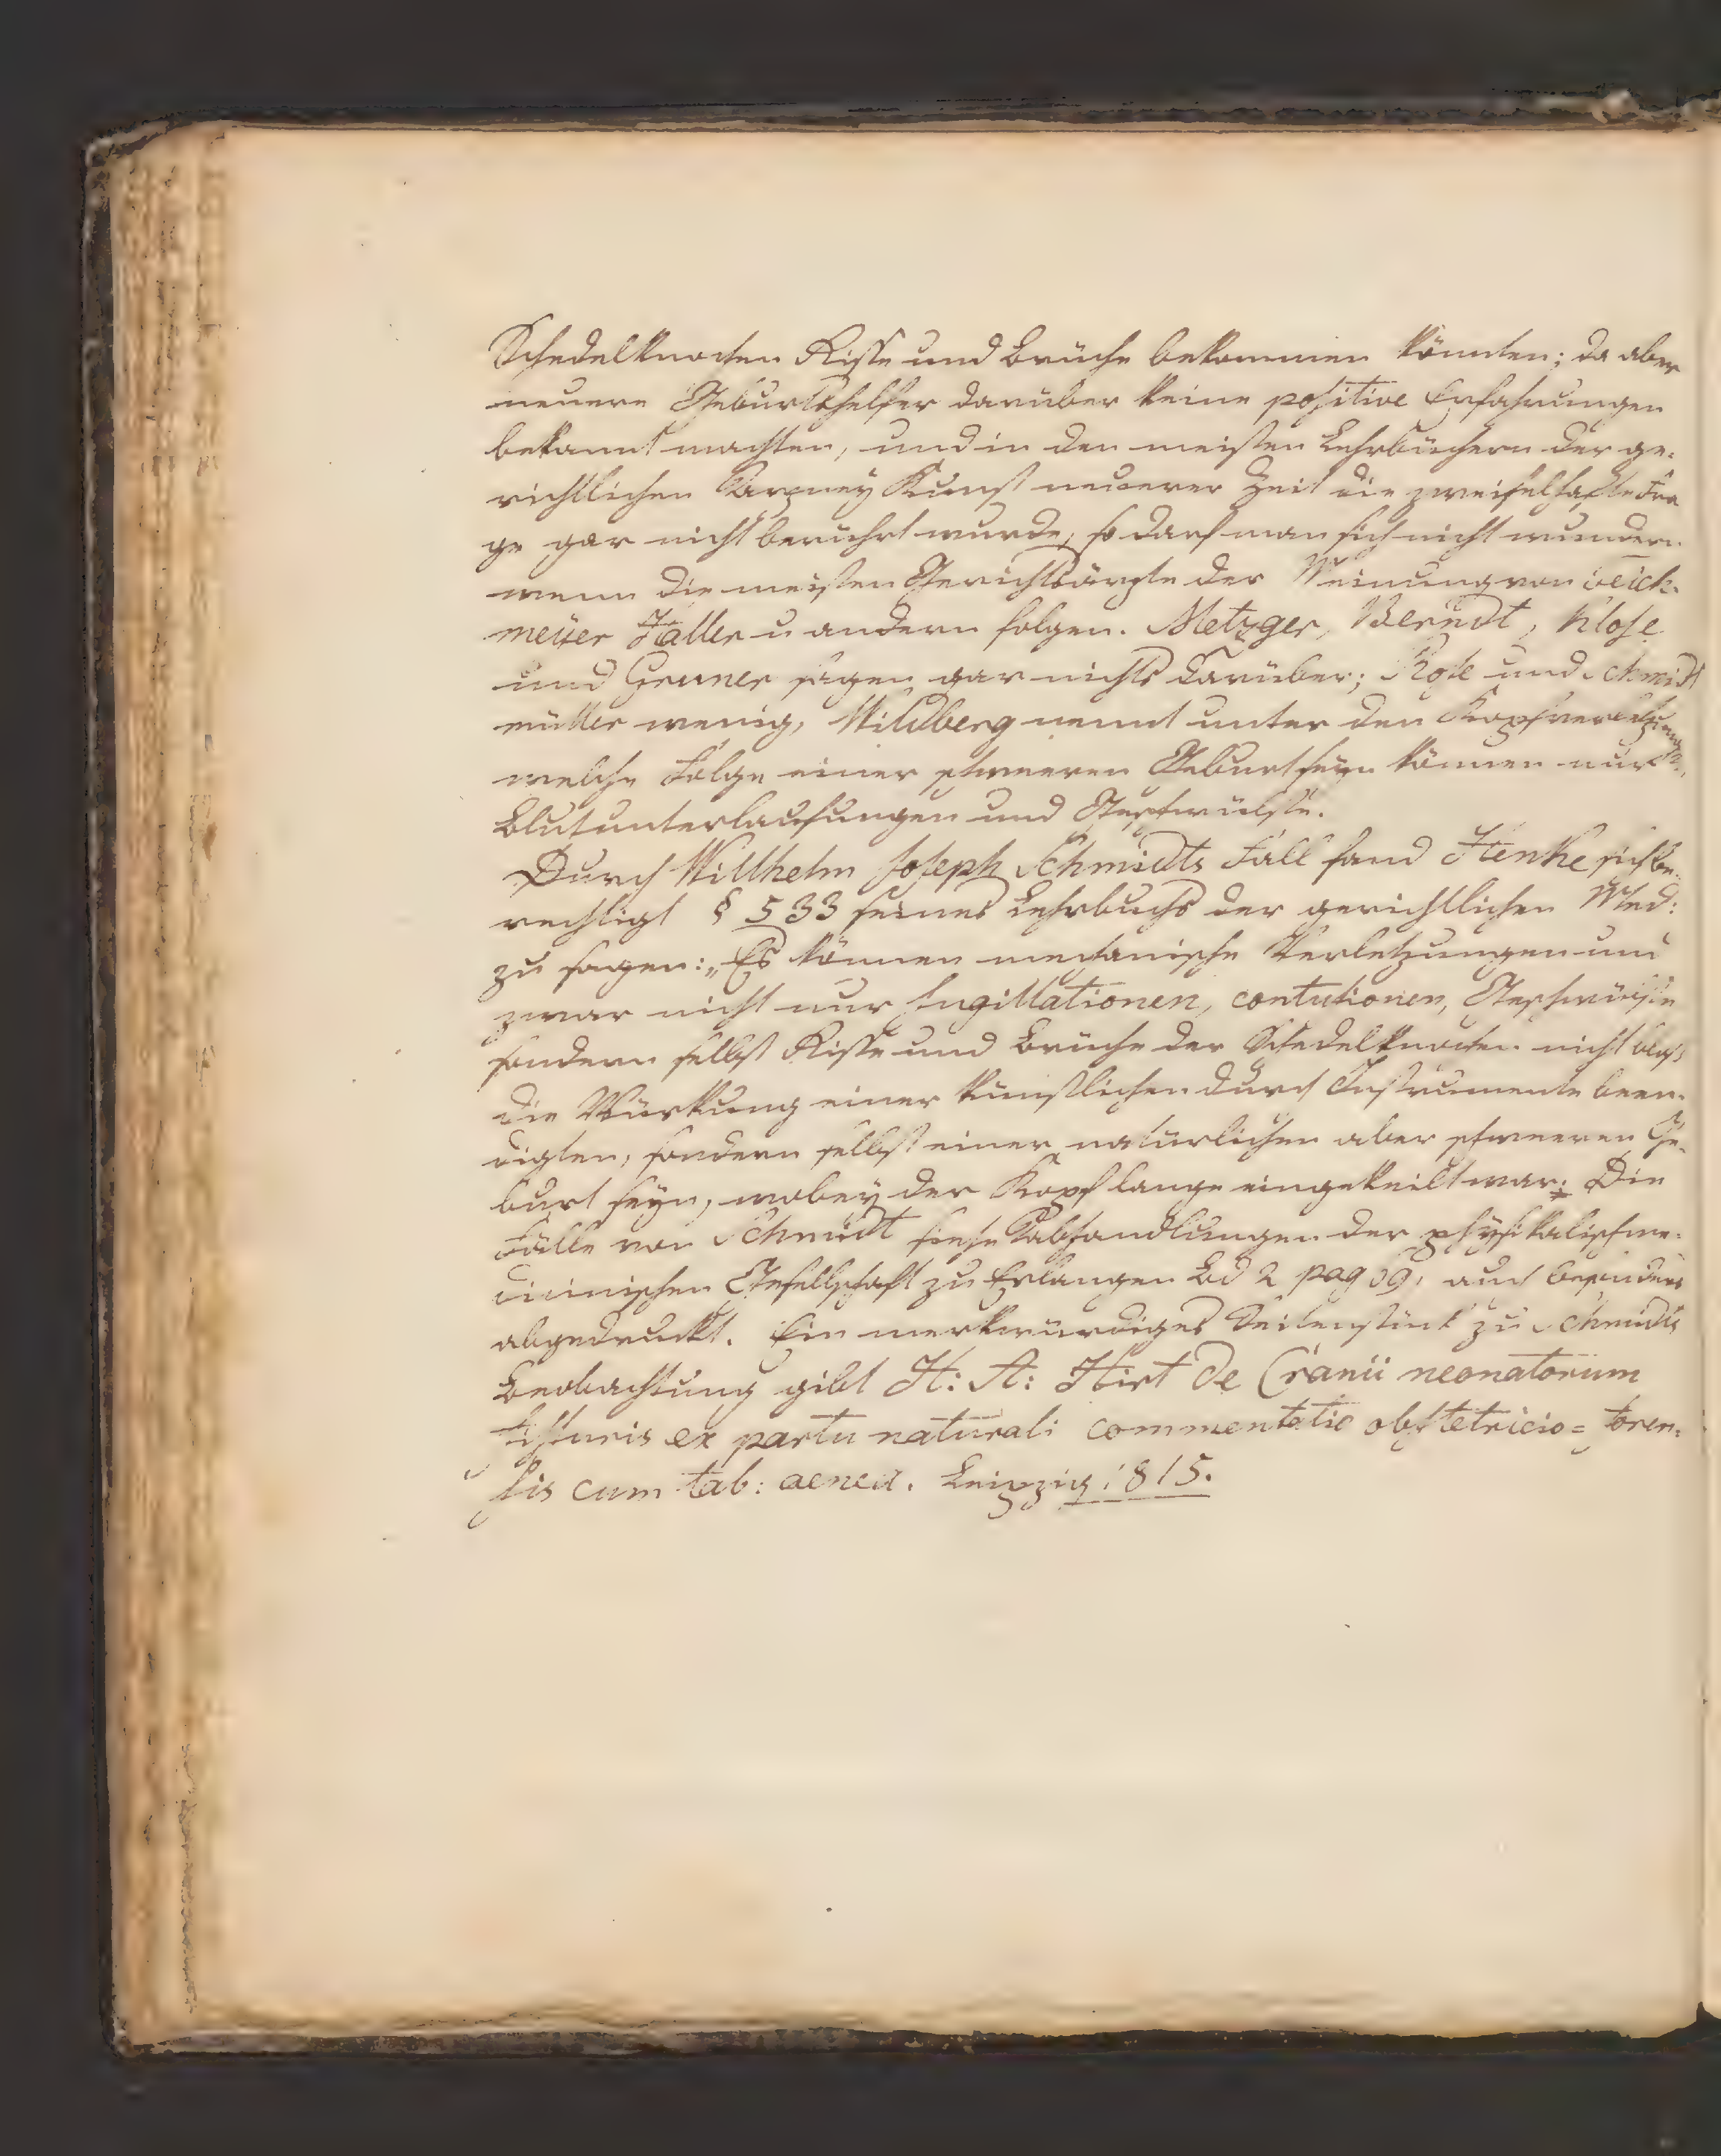 Schedelknochen Risse und Brüche bekommen könnten; da aber
neuere Geburtshelfer darüber keine positive Erfahrungen
bekannt machten, und in den meisten Lehrbüchern der ge-
richtlichen Arzney Kunst neuerer Zeit die zweifelhafte Fra
ge gar nicht berührt wurde, so darf man sich nicht wundern
wenn die meisten Gerichtsärzte der Meinung von Teich-
meüer Haller u andern folgen. Metzger, Berndt, Klose
und Gruner sagen gar nichts darüber; Rose und Schmidt
müller wenig, Wildberg nennt unter den Kopfverletzungen,
welche Folge einer schweeren Geburt seyn können nur
Blutunterlaufungen und Geschwülste.
Durch Willhelm Joseph Schmidts Fall fand Henke sich be-
rechtigt § 533 seines Lehrbuchs der gerichtlichen Med:
zu sagen: „Es können mechanische Verletzungen und
zwar nicht nur Sugillationen, contusionen, Geschwülste
sondern selbst Risse und Brüche der Schedelknochen nicht blos
die Würkung einer künstlichen durch Instrumente been-
digten, sondern selbst einer natürlichen aber schweeren Ge-
burt seyn, wobey der Kopf lange eingekeilt war. Die
Fälle von Schmidt siehe Abhandlungen der physikalischme-
dicinischen Gesellschaft zu Erlangen Bd 2 pag 09, auch besonders
abgedruckt. Ein merkwürdiges Seitenstück zu Schmidts
Beobachtung gibt H: A: Hirt de Cranii neonatorum
fissuris ex partu naturali commentatio obstetricio= foren-
sis cum tab: aenea. Leipzig 1815.